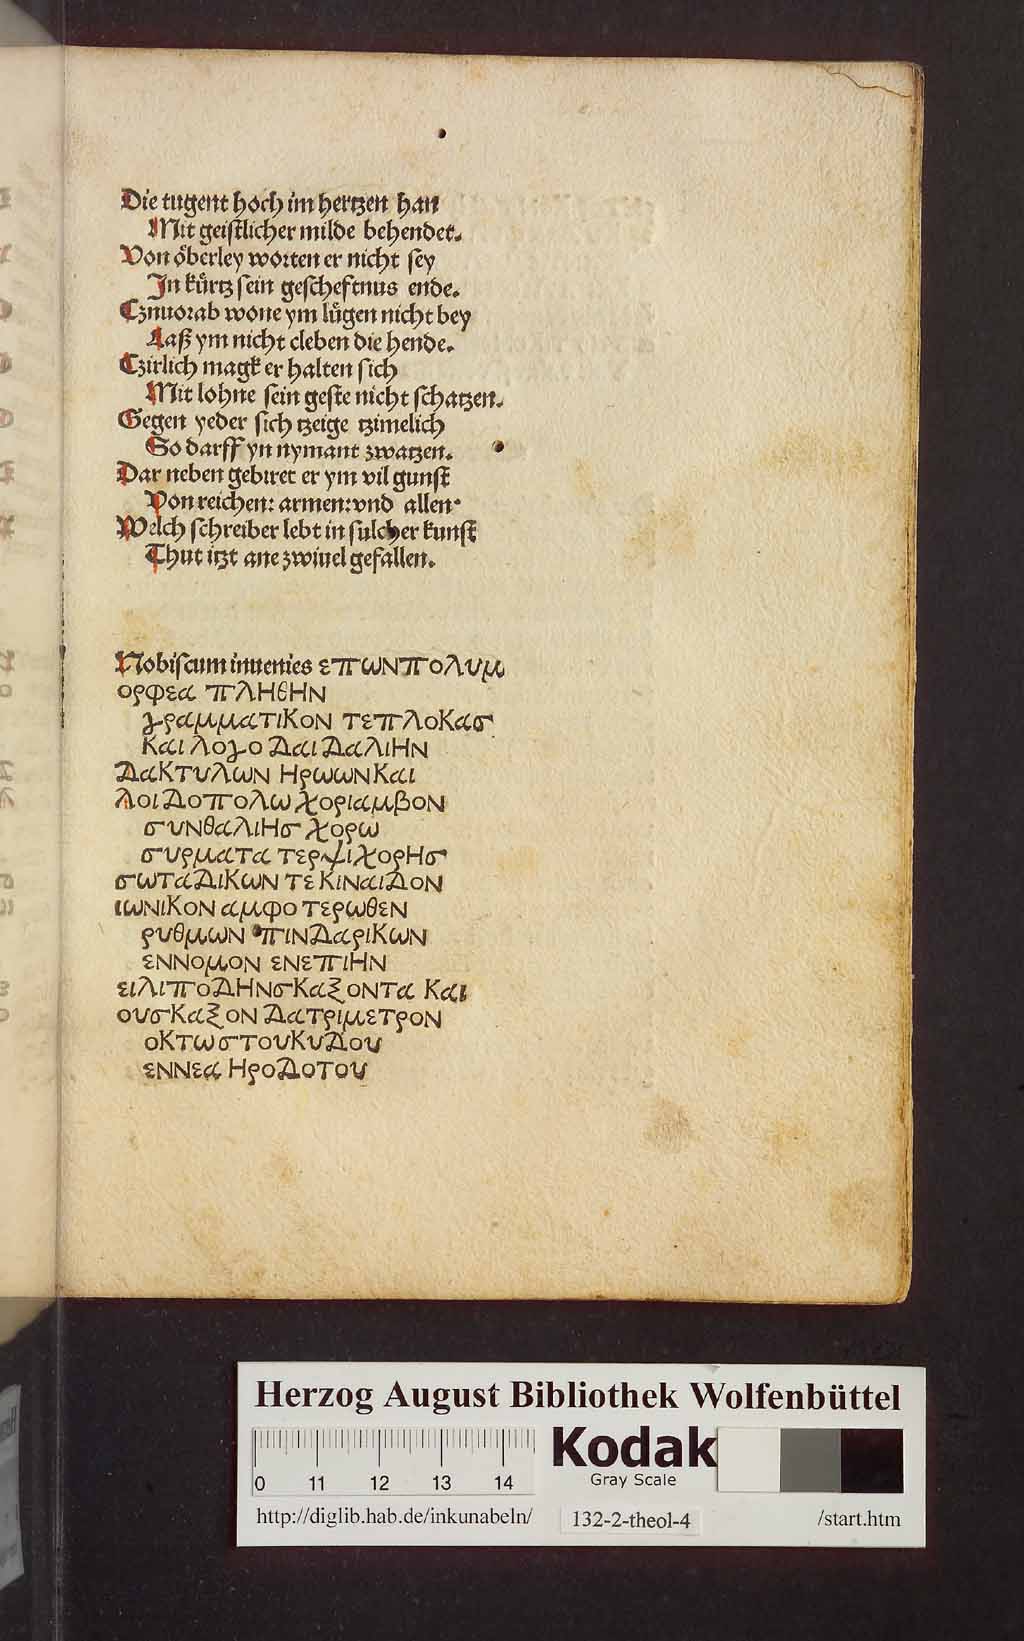 Die tugent hoch im hertzen han
Mit geistlicher milde behendet.
Von oͤberley worten er nicht sey
In kuͤrtz sein gescheftnus ende.
Cznuorab wone ym luͤgen nicht bey
Laß ym nicht cleben die hende.
Czirlich magk er halten sich
Mit lohne sein geste nicht schatzen.
Gegen yeder sich tzeige tzimelich
So darff yn nymant zwatzen.
Dar neben gebiret er ym vil gunst
Von reichen: armen: vnd allen.
Welch schreiber lebt in sulcher kunst
Thut itzt ane zwiuel gefallen.
Nobiscum inuenies επωνπολυμ
ορφεα πλΗθΗΝ
γραμματικον τεπλοκας
και λογο Δαι ΔαλιΗΝ
Δακτυλων Ηρωων και
λοι Δοπολω χοριαμβον
συνθαλιΗς χορω
συρματα τερψιχορΗς
σωταΔικων τε κιναιΔον
ιωνικον αμφο τερωθεν
ρυθμων πινΔαρικων
εννομον ενεπιΗΝ
ειλιποΔΗνσκαξοντα και
ουσκαξον Δατριμετρον
οκτω στουκυΔου
εννεα ΗροΔοτου
Herzog August Bibliothek Wolfenbüttel
0 11 12 13 14
Kodak
Gray Scale
http://diglib.hab.de/inkunabeln/ 132-2-theol-4 /start.htm